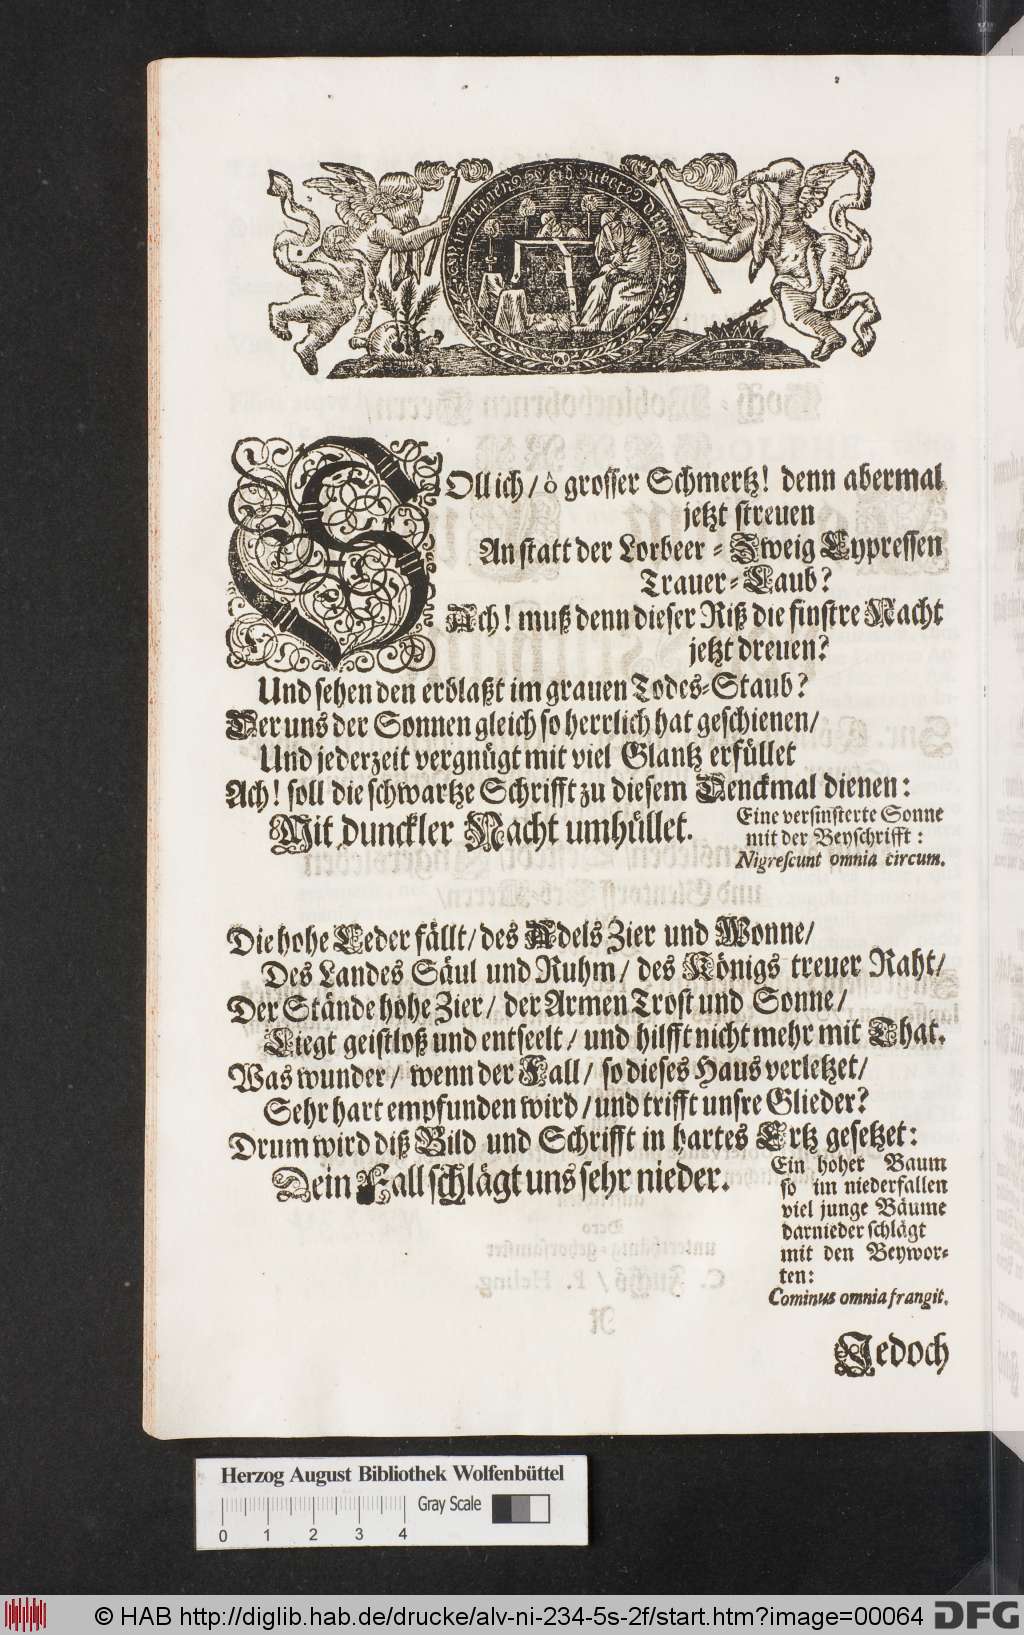 SOll ich / ô grosser Schmertz! denn abermal
jetzt streuen
An statt der Lorbeer-Zweig Cypressen
Trauer-Laub?
Ach! muß denn dieser Riß die finstre Nacht
jetzt dreuen?
Und sehen den erblaßt im grauen Todes-Staub?
Der uns der Sonnen gleich so herrlich hat geschienen/
Und jederzeit vergnügt mit viel Glantz erfüllet
Ach! soll die schwartze Schrifft zu diesem Denckmal dienen:
Mit dunckler Nacht umhüllet.
Eine versinsterte Sonne
mit der Beyschrifft:
Nigrescunt omnia circum.
Die hohe Ceder fällt/ des Adels Zier und Wonne/
Des Landes Säul und Ruhm/ des Königs treuer Raht/
Der Stände hohe Zier/ der Armen Trost und Sonne/
Liegt geistloß und entseelt/ und hilfft nicht mehr mit That.
Was wunder/ wenn der Fall/ so dieses Haus verletzet/
Sehr hart empfunden wird/ und trifft unsre Glieder?
Drum wird diß Bild und Schrifft in hartes Ertz gesetzet:
Dein Fall schlägt uns sehr nieder.
Ein hoher Baum
so im niederfallen
viel junge Bäume
darnieder schlägt
mit den Beywor-
ten:
Cominus omnia frangit.
Jedoch
Herzog August Bibliothek Wolfenbüttel
Gray Scale
0 1 2 3 4
© HAB http://diglib.hab.de/drucke/alv-ni-234-5s-2f/start.htm?image=00064
DFG